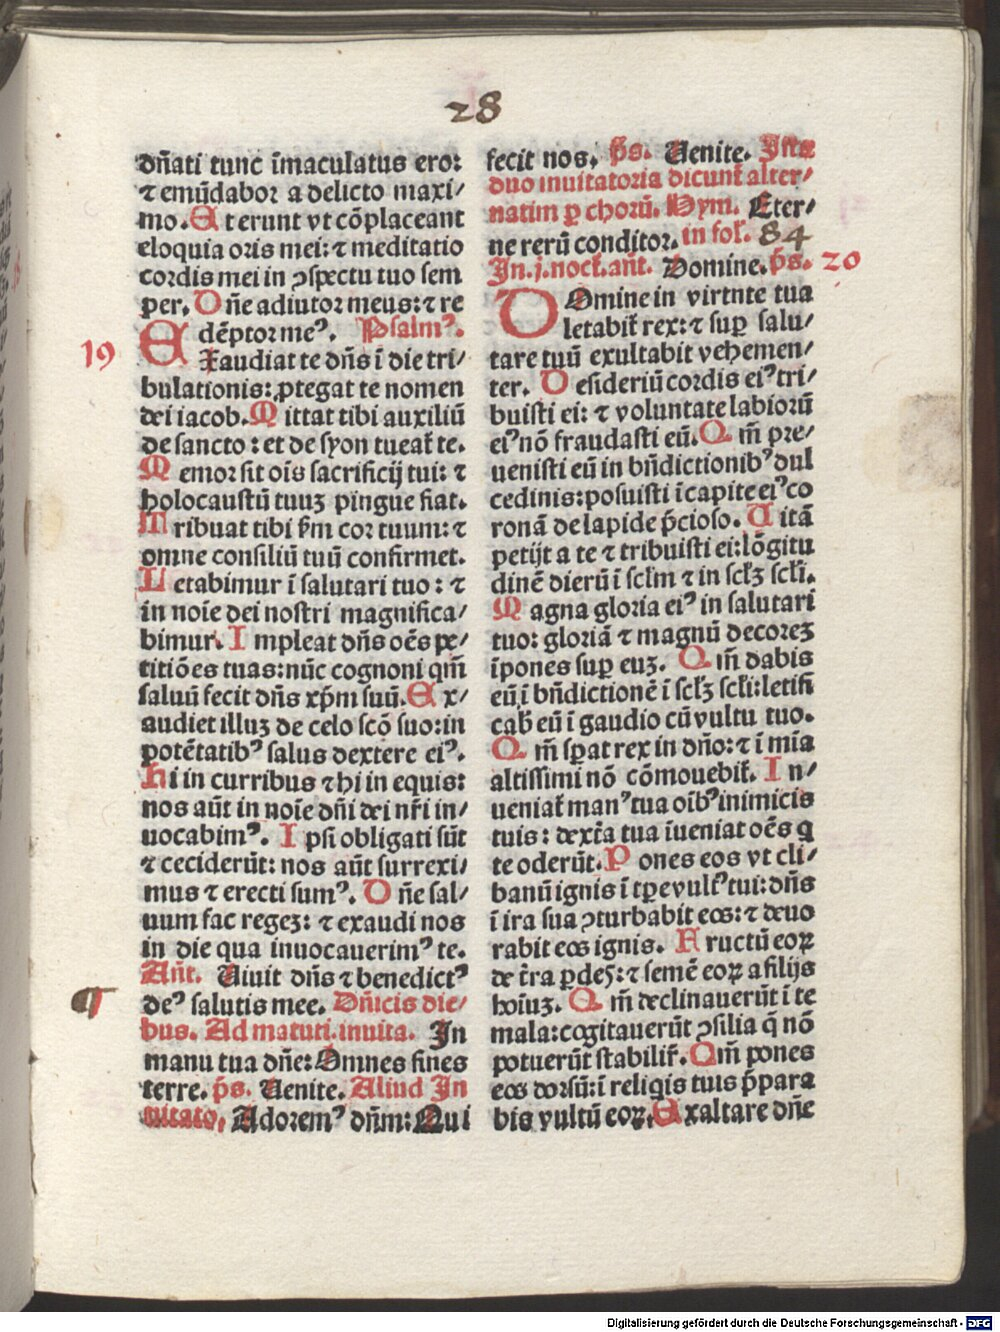 28
dn̄ati tunc ĩmaculatus ero:
⁊ emũdabor a delicto maxi/
mo. Et erunt vt cõplaceant
eloquia oris mei: ⁊ meditatio
cordis mei in ꝯspectu tuo sem
per. Dñe adiutor meus: ⁊ re
dẽptor meꝰ. Psalmꝰ.
19
EXaudiat te dñs ĩ die tri/
bulationis: ꝓtegat te nomen
dei iacob. Mittat tibi auxiliũ
de sancto: et de syon tueat̃ te.
Memor sit oĩs sacrificij tui: ⁊
holocaustũ tuuꝫ pingue fiat.
Tribuat tibi ẜm cor tuum: ⁊
omne consiliũ tuũ confirmet.
Letabimur ĩ salutari tuo: ⁊
in noĩe dei nostri magnifica/
bimur. Impleat dñs oẽs pe/
titiões tuas: nũc cognoui qm̃
saluũ fecit dñs xp̃m suũ. Ex/
audiet illuꝫ de celo scõ suo: in
potẽtatibꝰ salus dextere eiꝰ.
Hi in curribus ⁊ hi in equis:
nos aũt in noĩe dñi dei nr̃i in/
uocabimꝰ. Ipsi obligati sũt
⁊ ceciderũt: nos aũt surrexi/
mus ⁊ erecti sumꝰ. Dñe sal/
uum fac regeꝫ: ⁊ exaudi nos
in die qua inuocauerimꝰ te.
Añt. Uiuit dñs ⁊ benedictꝰ
¶ deꝰ salutis mee. Dñicis die/
bus. Ad matuti. inuita. In
manu tua dñe: Omnes fines
terre. p̃s. Uenite. Aliud In
uitato. Adoremꝰ dñm: Qui
fecit nos. p̃s. Uenite. Ista
duo inuitatoria dicunt̃ alter/
natim ꝑ chorũ. Hym. Eter/
ne rerũ conditor. in fol. 84
In .j. noct̃. añt. Domine. p̃s. 20
DOmine in virtnte tua
letabit̃ rex: ⁊ suꝑ salu/
tare tuũ exultabit vehemen/
ter. Desideriũ cordis eiꝰ tri/
buisti ei: ⁊ voluntate labiorũ
eiꝰ nõ fraudasti eũ. Qm̃ pre/
uenisti eũ in bñdictionibꝰ dul
cedinis: posuisti ĩ capite eiꝰ co
ronã de lapide p̃cioso. Uitã
petijt a te ⁊ tribuisti ei: lõgitu
dinẽ dierũ ĩ scl̃m ⁊ in scl̃ꝫ scl̃i.
Magna gloria eiꝰ in salutari
tuo: gloriã ⁊ magnũ decoreꝫ
ĩpones suꝑ euꝫ. Qm̃ dabis
eũ ĩ bñdictionẽ ĩ scl̃ꝫ scl̃i: letifi
cab̃ eũ ĩ gaudio cũ vultu tuo.
Qm̃ sꝑat rex in dño: ⁊ ĩ mĩa
altissimi nõ cõmouebit̃. In/
ueniat̃ manꝰ tua oĩbꝰ inimicis
tuis: dext̃a tua ĩueniat oẽs q
te oderũt. Pones eos vt cli/
banũ ignis ĩ tꝑe vult̃ꝰ tui: dñs
ĩ ira sua ꝯturbabit eos: ⁊ deuo
rabit eos ignis. Fructũ eoꝝ
de t̃ra ꝑdes: ⁊ semẽ eoꝝ a filijs
hoĩuꝫ. Qm̃ declinauerũt ĩ te
mala: cogitauerũt ꝯsilia q̃ nõ
potuerũt stabilir̃. Qm̃ pones
eos dorsũ: ĩ reliqis tuis p̃para
bis vultũ eoꝝ. Exaltare dñe
Digitalisierung gefördert durch die Deutsche Forschungsgemeinschaft - DFG